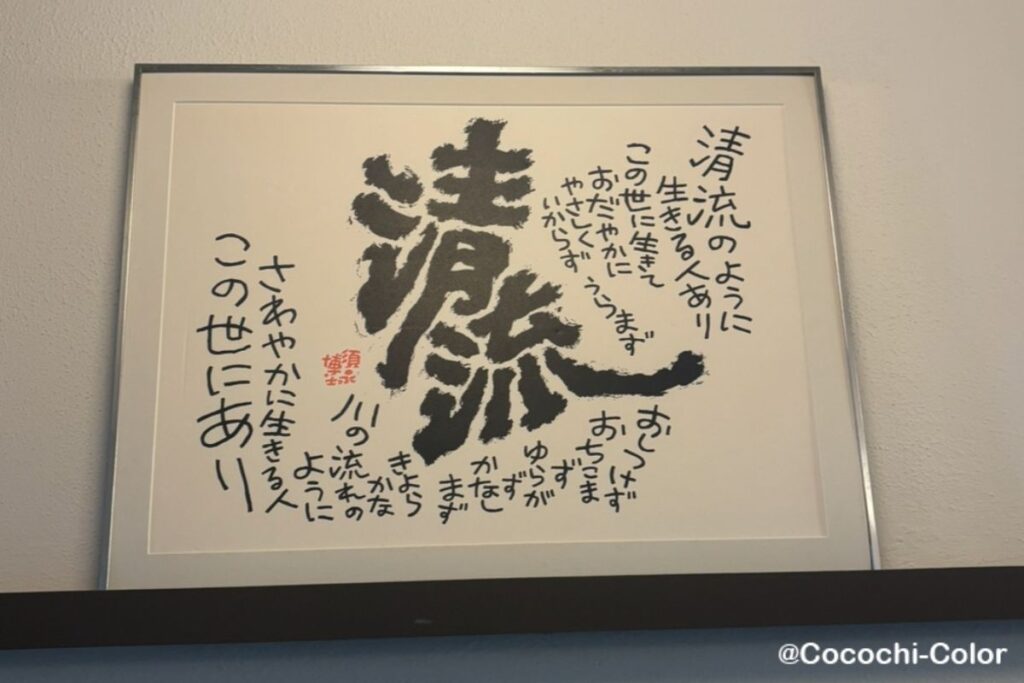 清流
清流のように
生きる人あり
この世に生きて
おだやかに
やさしく
いからず
うらまず
おしつけず
おちこま
ず
ゆらが
ず
かなし
まず
きよら
かな
川の流れの
ように
さわやかに生きる人
この世にあり
須永
博士
@Cocochi-Color